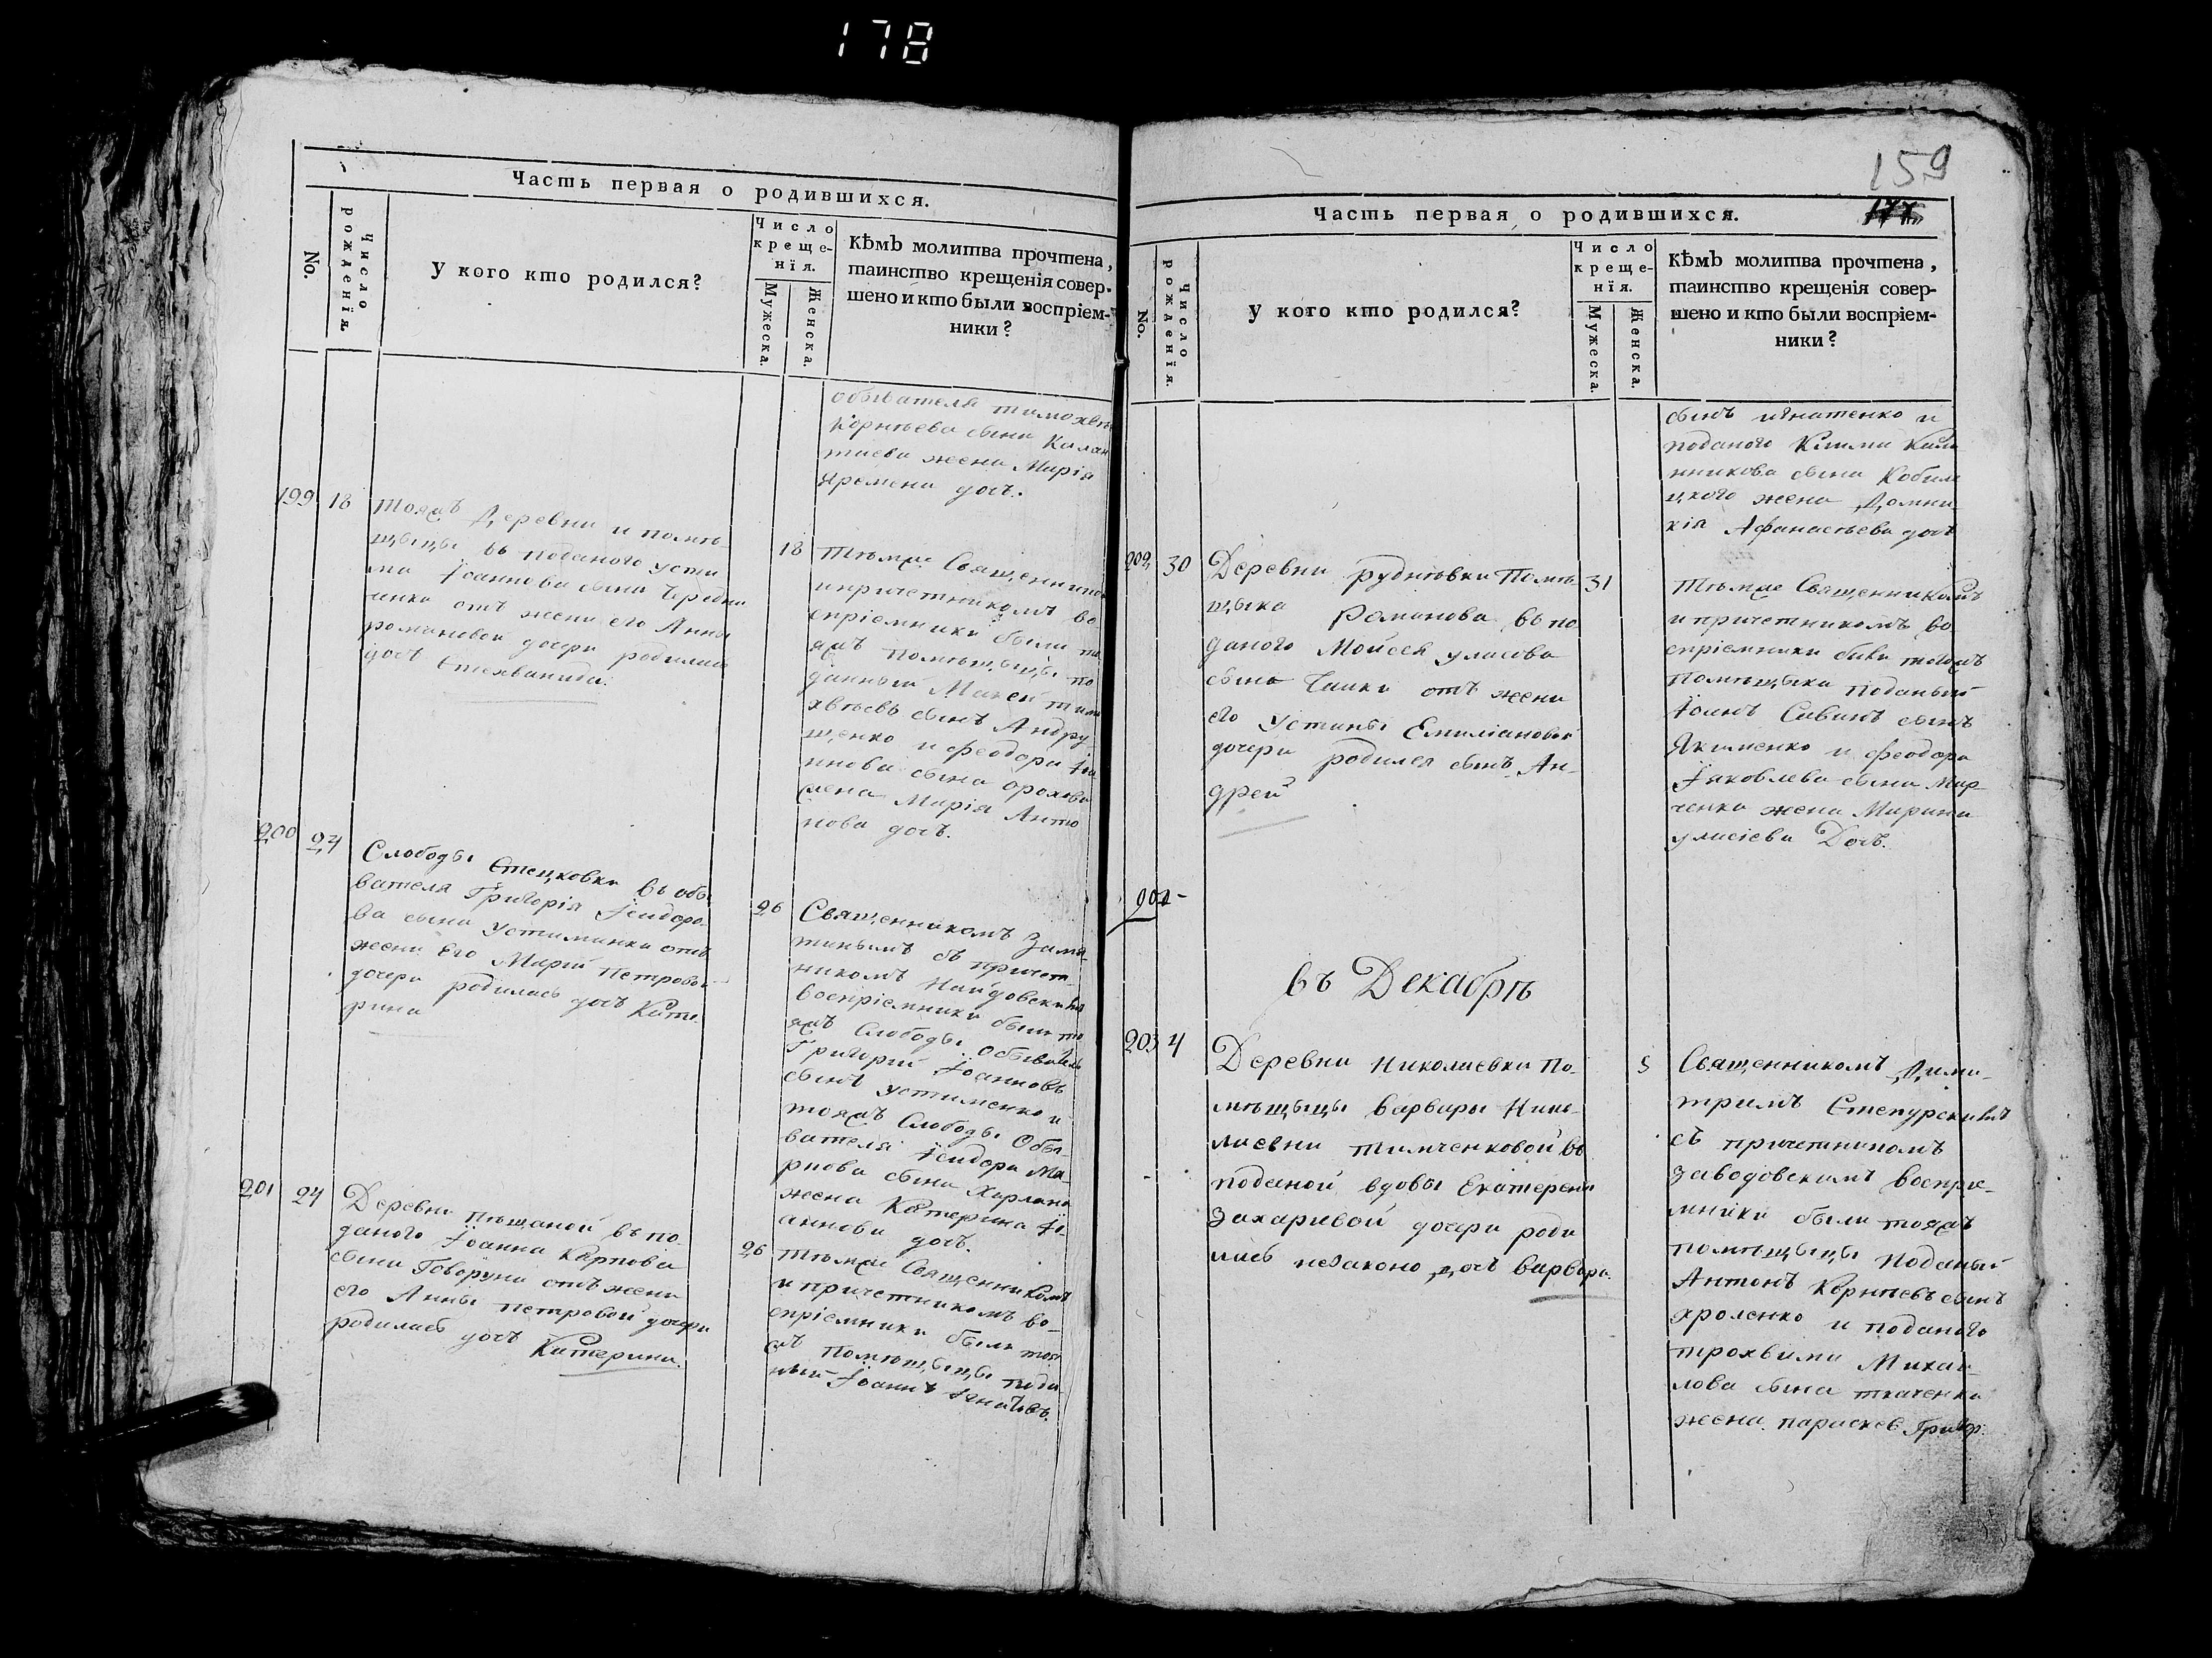 178
Часть первая о родившихся.
No.
Число рожденїя.
У кого кто родился?
Число креще-нїя.
Мужеска.
Женска.
Кѣмъ молитва прочтена,
таинство крещенїя совер-
шено и кто были воспрїем-
ники?
обывателя тимохвея
Корнѣева сына
жена Марія
дочь.
199 18
тояжъ Деревни и помѣ-
щыцы въ поданого усти
ма Іоаннова сына
отъ жени его Анны
романовой дочери родилась
дочь Стехванида.
18
тѣмже Священникомъ
и причетникомъ во
спріемники были то
яжъ помѣщыцы по
данный тимо
хвѣевъ сынъ Андру
щенко и феодора Іоа
ннова сына
жена Марія Анто
нова дочь.
200 24
Слободы Стецковки въ обы
вателя Григорія Ісидоро-
ва сына устименка отъ
жени его Маріи петровы
дочери родилась дочь Кате
рина
26
Священникомъ
съ причет
никомъ
воспріемники были то
яжъ Слободы Обыватель
Григорий Іоанновъ
сынъ устименко и
тояжъ Слободы Обы
вателя Ісидора Ма-
ркова сына
жена Катерина Іо
аннова дочь.
201 24
Деревни пѣщаной въ по
даного Іоанна Карпова
сына Говоруна отъ жени
его Анны петровой дочери
родилась дочь Катерина.
26
тѣмже Священникомъ
и причетникомъ во-
спріемники были тоя
жъ помѣщыцы пода
ный Іоаннъ
159
177
Часть первая о родившихся.
No.
Число рожденїя.
У кого кто родился?
Число креще-нїя.
Мужеска.
Женска.
Кѣмъ молитва прочтена,
таинство крещенїя совер-
шено и кто были воспрїем-
ники?
сынъ игнатенко и
поданого Клима Кали
нникова сына
жена Домни
кія Афанасьева дочь
202 30
Деревни рудневки Помѣ
щыка Романова въ по
даного Мойсея уласова
сына Чайки отъ жени
его устины Емиліановой
дочери родился сынъ Ан-
дрей
31
тѣмже Священникомъ
и причетникомъ во
спріемники были тогожъ
помѣщыка поданый
Іоанъ Савинъ сынъ
Якименко и феодора
Іяковлева сына Мар
ченка жена Марина
дочь.
202-
въ Декабрѣ
203 4
Деревни Николаевки По-
мѣщыцы варвары Нико-
лаевни тимченковой въ
поданой вдовы Екатерени
Захариевой дочери роди
лась незаконо дочь варвара.
5
Священникомъ Дими-
триемъ Степурскимъ
съ причетникомъ
заводовскимъ восприе-
мники были тояжъ
помѣщыцы поданый
Антонъ Корнѣевъ сынъ
яроленко и поданого
трохвима Михаи-
лова сына ткаченка
жена параскев. Григор.